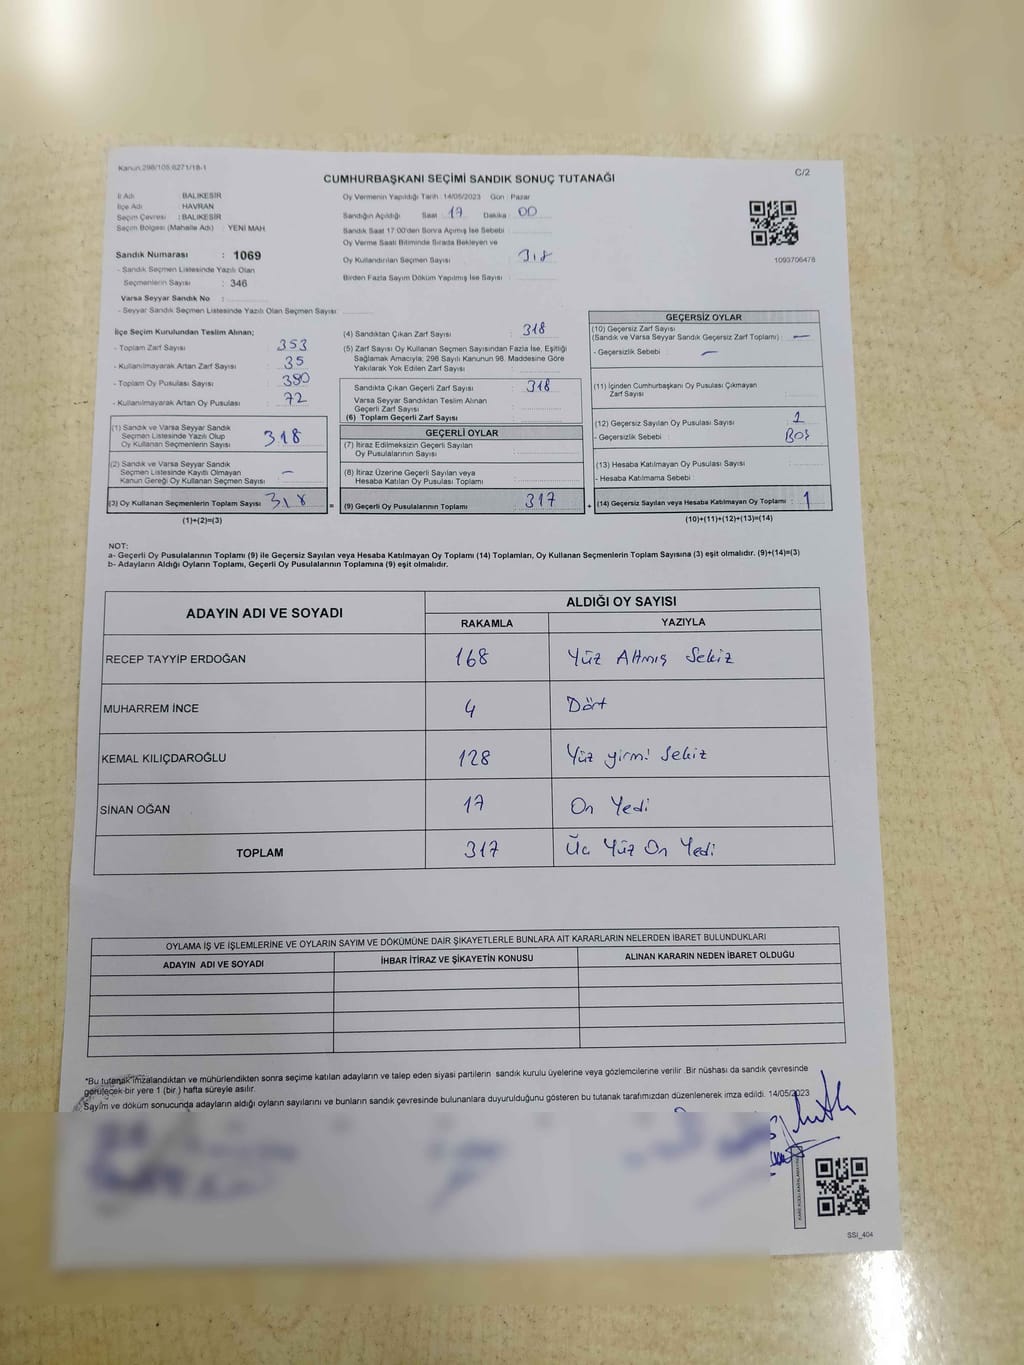 Kanun:298/105;6271/18-1
C/2
CUMHURBAŞKANI SEÇİMİ SANDIK SONUÇ TUTANAĞI
İl Adı BALIKESİR
İlçe Adı HAVRAN
Seçim Çevresi : BALIKESİR
Seçim Bölgesi (Mahalle Adı) YENİ MAH.
Sandık Numarası : 1069
- Sandık Seçmen Listesinde Yazılı Olan
Seçmenlerin Sayısı : 346
Varsa Seyyar Sandık No :
- Seyyar Sandık Seçmen Listesinde Yazılı Olan Seçmen Sayısı :
Oy Vermenin Yapıldığı Tarih 14/05/2023 Gün : Pazar
Sandığın Açıldığı Saat 17 Dakika : 00
Sandık Saat 17:00'den Sonra Açılmış İse Sebebi :
Oy Verme Saati Bitiminde Sırada Bekleyen ve
Oy Kullandırılan Seçmen Sayısı : 318
Birden Fazla Sayım Döküm Yapılmış İse Sayısı :
1093706478
İlçe Seçim Kurulundan Teslim Alınan;
- Toplam Zarf Sayısı : 353
- Kullanılmayarak Artan Zarf Sayısı : 35
- Toplam Oy Pusulası Sayısı : 390
- Kullanılmayarak Artan Oy Pusulası : 72
(1) Sandık ve Varsa Seyyar Sandık
Seçmen Listesinde Yazılı Olup
Oy Kullanan Seçmenlerin Sayısı 318
(2) Sandık ve Varsa Seyyar Sandık
Seçmen Listesinde Kayıtlı Olmayan
Kanun Gereği Oy Kullanan Seçmen Sayısı : —
(3) Oy Kullanan Seçmenlerin Toplam Sayısı : 318
(1)+(2)=(3)
(4) Sandıktan Çıkan Zarf Sayısı : 318
(5) Zarf Sayısı Oy Kullanan Seçmen Sayısından Fazla İse, Eşitliği
Sağlamak Amacıyla; 298 Sayılı Kanunun 98. Maddesine Göre
Yakılarak Yok Edilen Zarf Sayısı :
Sandıkta Çıkan Geçerli Zarf Sayısı : 318
Varsa Seyyar Sandıktan Teslim Alınan
Geçerli Zarf Sayısı :
(6) Toplam Geçerli Zarf Sayısı :
GEÇERLİ OYLAR
(7) İtiraz Edilmeksizin Geçerli Sayılan
Oy Pusulalarının Sayısı :
(8) İtiraz Üzerine Geçerli Sayılan veya
Hesaba Katılan Oy Pusulası Toplamı :
= (9) Geçerli Oy Pusulalarının Toplamı : 317
GEÇERSİZ OYLAR
(10) Geçersiz Zarf Sayısı
(Sandık ve Varsa Seyyar Sandık Geçersiz Zarf Toplamı) : —
- Geçersizlik Sebebi : —
(11) İçinden Cumhurbaşkanı Oy Pusulası Çıkmayan
Zarf Sayısı :
(12) Geçersiz Sayılan Oy Pusulası Sayısı : 1
- Geçersizlik Sebebi : Boş
(13) Hesaba Katılmayan Oy Pusulası Sayısı :
- Hesaba Katılmama Sebebi :
+ (14) Geçersiz Sayılan veya Hesaba Katılmayan Oy Toplamı : 1
(10)+(11)+(12)+(13)=(14)
NOT:
a- Geçerli Oy Pusulalarının Toplamı (9) ile Geçersiz Sayılan veya Hesaba Katılmayan Oy Toplamı (14) Toplamları, Oy Kullanan Seçmenlerin Toplam Sayısına (3) eşit olmalıdır. (9)+(14)=(3)
b- Adayların Aldığı Oyların Toplamı, Geçerli Oy Pusulalarının Toplamına (9) eşit olmalıdır.
ADAYIN ADI VE SOYADI ALDIĞI OY SAYISI
RAKAMLA YAZIYLA
RECEP TAYYİP ERDOĞAN 168 Yüz Altmış Sekiz
MUHARREM İNCE 4 Dört
KEMAL KILIÇDAROĞLU 128 Yüz yirmi Sekiz
SİNAN OĞAN 17 On Yedi
TOPLAM 317 Üç Yüz On Yedi
OYLAMA İŞ VE İŞLEMLERİNE VE OYLARIN SAYIM VE DÖKÜMÜNE DAİR ŞİKAYETLERLE BUNLARA AİT KARARLARIN NELERDEN İBARET BULUNDUKLARI
ADAYIN ADI VE SOYADI İHBAR İTİRAZ VE ŞİKAYETİN KONUSU ALINAN KARARIN NEDEN İBARET OLDUĞU
*Bu tutanak imzalandıktan ve mühürlendikten sonra seçime katılan adayların ve talep eden siyasi partilerin sandık kurulu üyelerine veya gözlemcilerine verilir. Bir nüshası da sandık çevresinde
görülecek bir yere 1 (bir) hafta süreyle asılır.
Sayım ve döküm sonucunda adayların aldığı oyların sayılarını ve bunların sandık çevresinde bulunanlara duyurulduğunu gösteren bu tutanak tarafımızdan düzenlenerek imza edildi. 14/05/2023
SSI_404